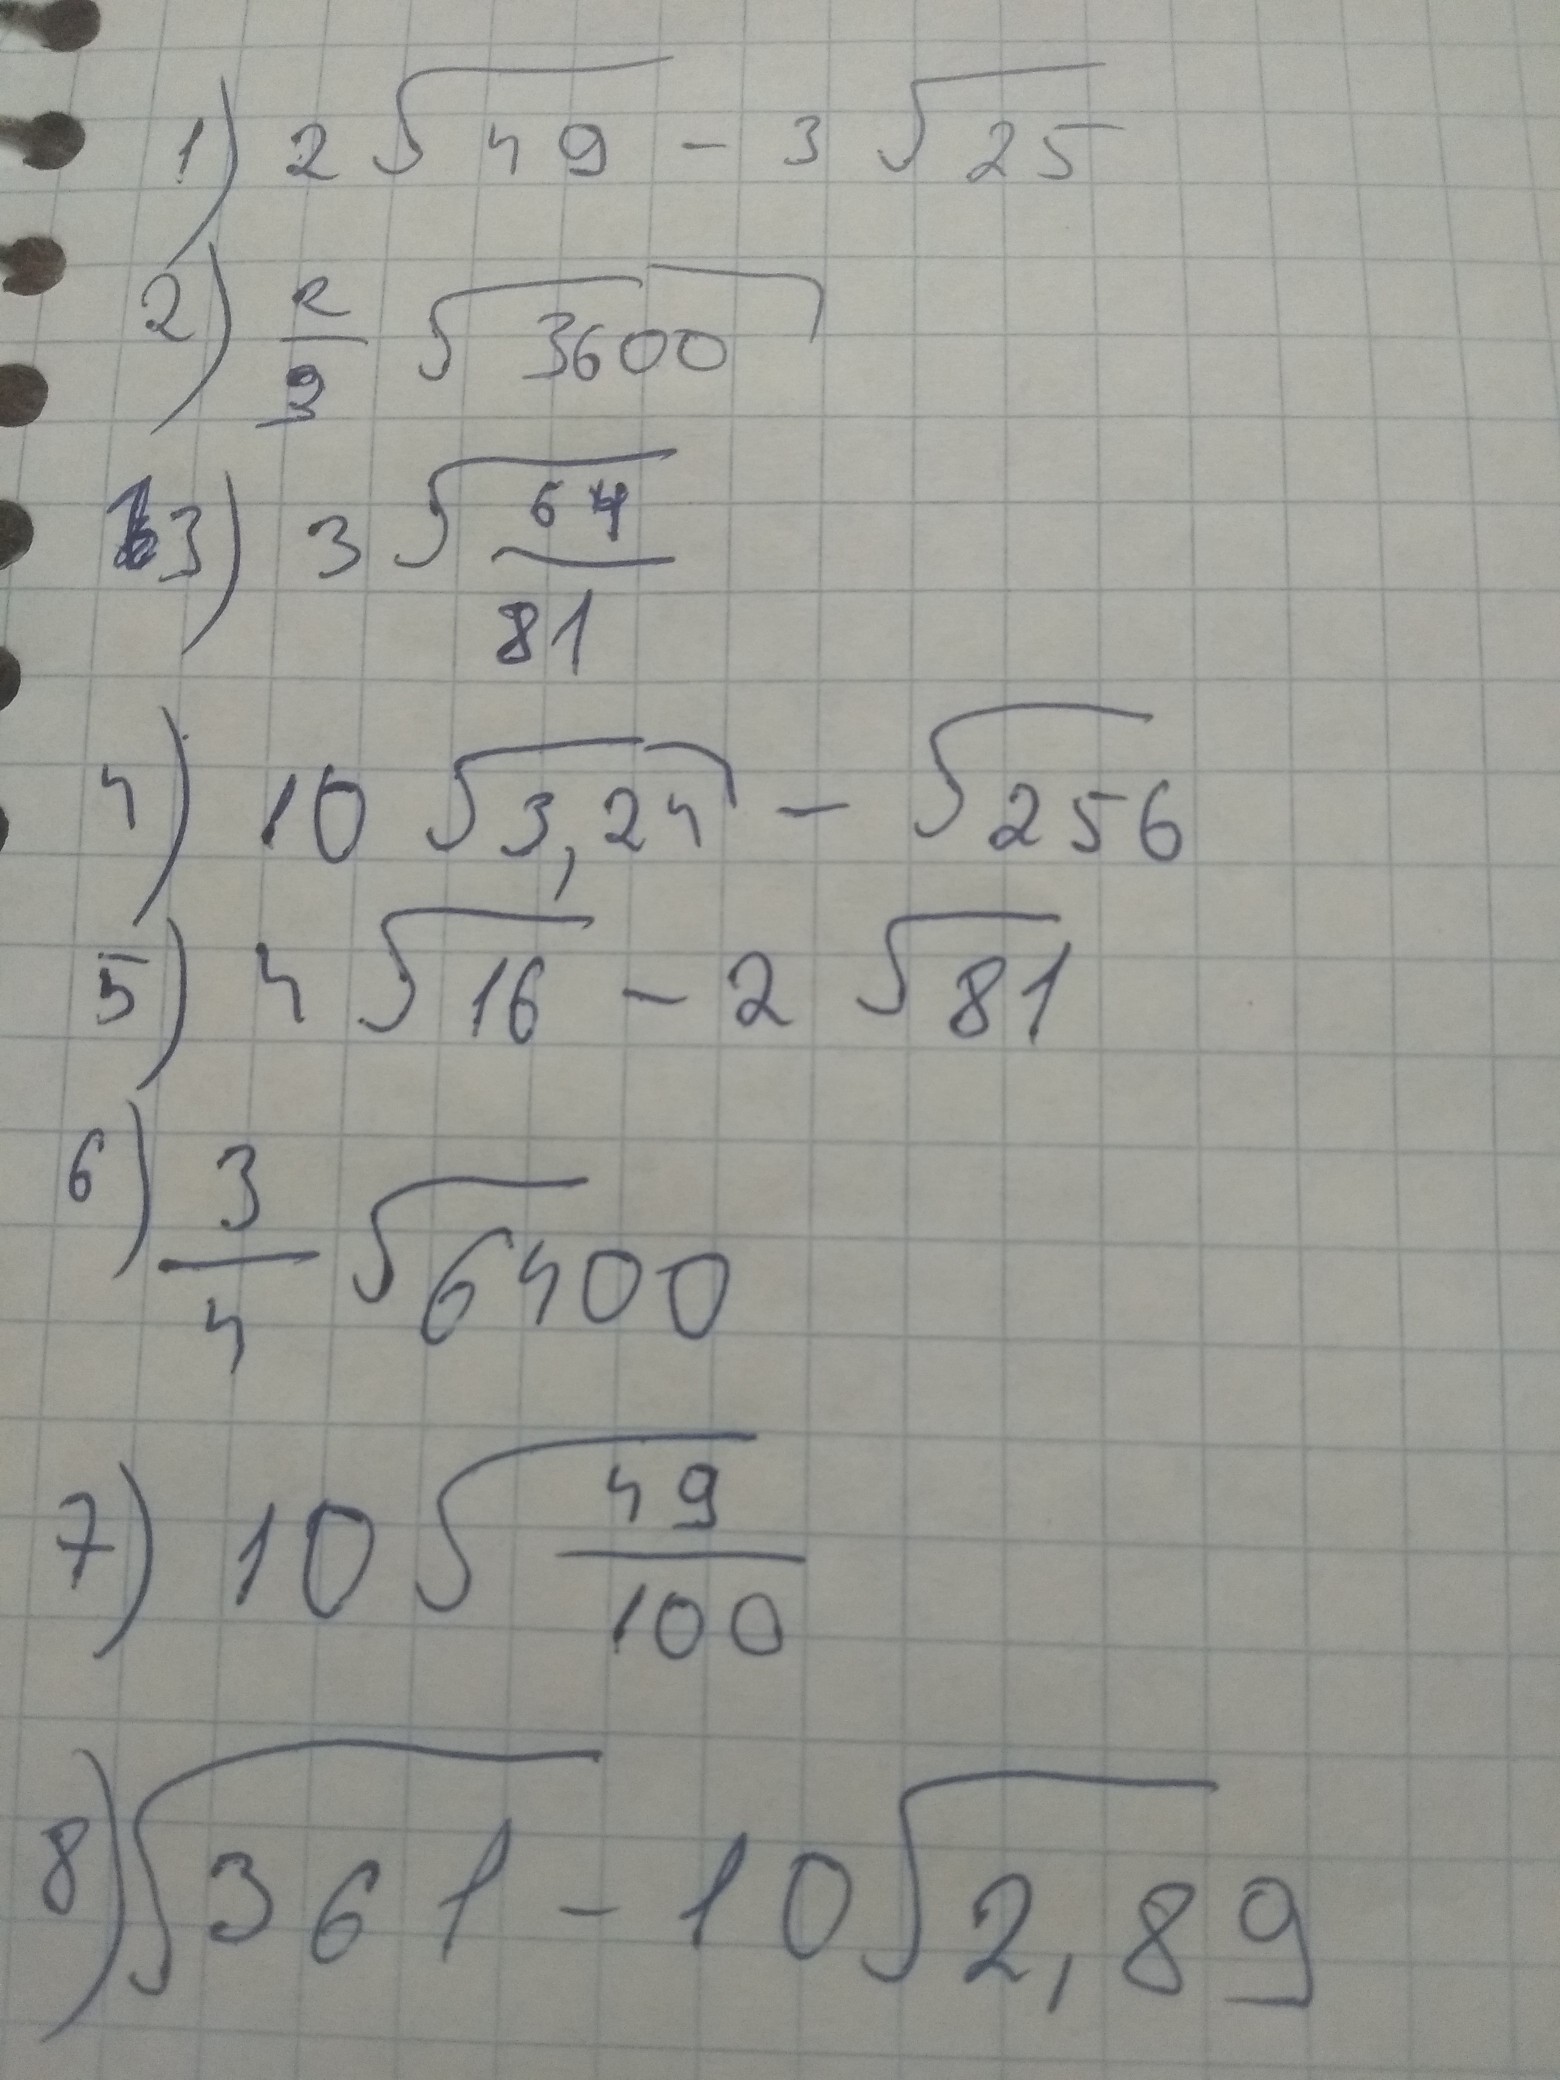 1) 2√49 - 3√25
2) 2/9 √3600
3) 3√64/81
4) 10√3,24 - √256
5) 4√16 - 2√81
6) 3/4 √6400
7) 10√49/100
8) √361 - 10√2,89